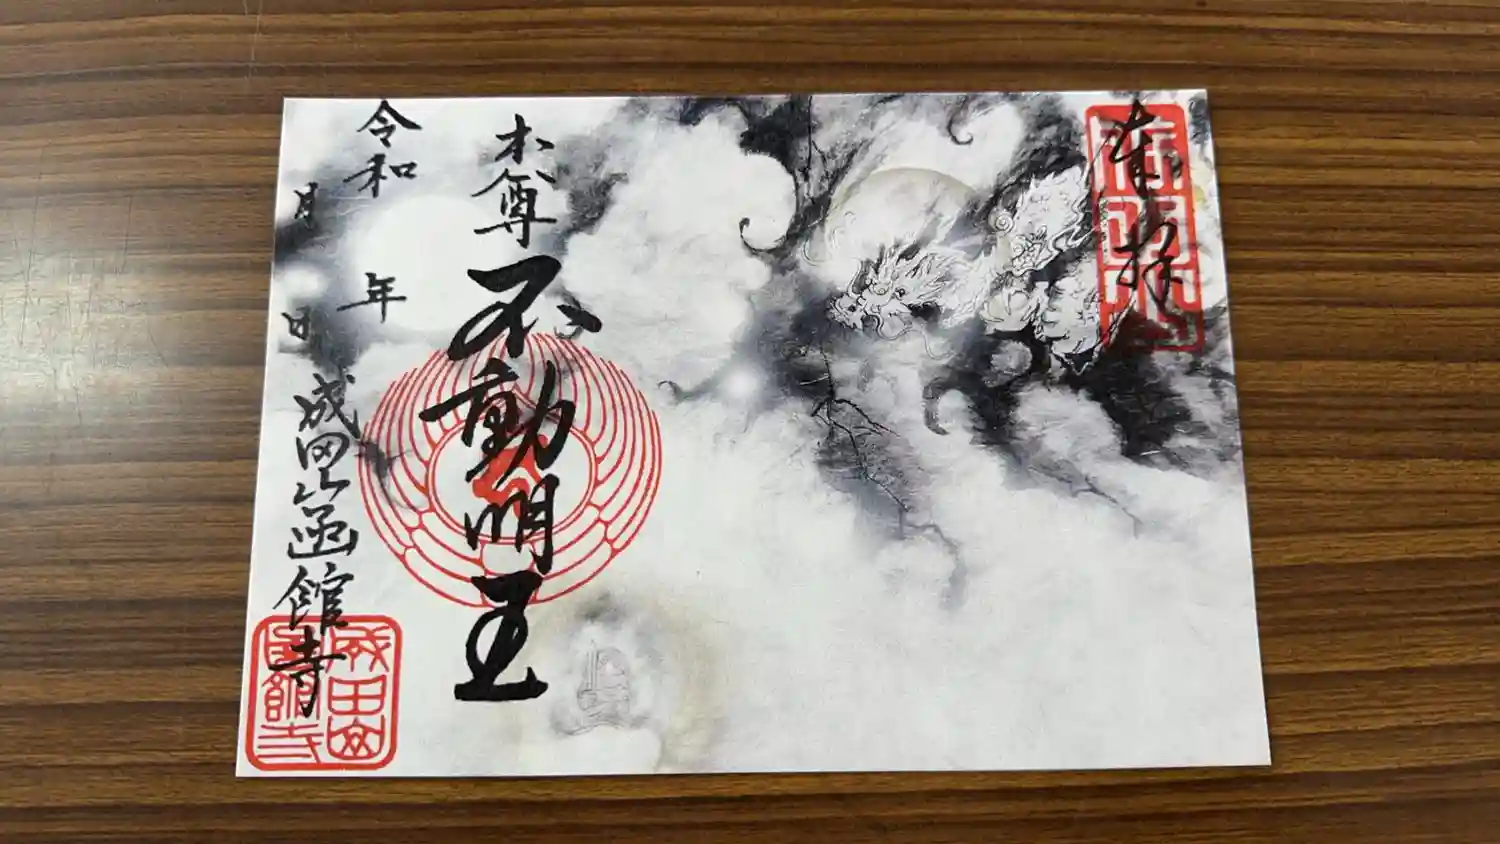 奉拝
本尊
不動明王
令和 年
月 日
成田山函館寺
成田山
函館寺